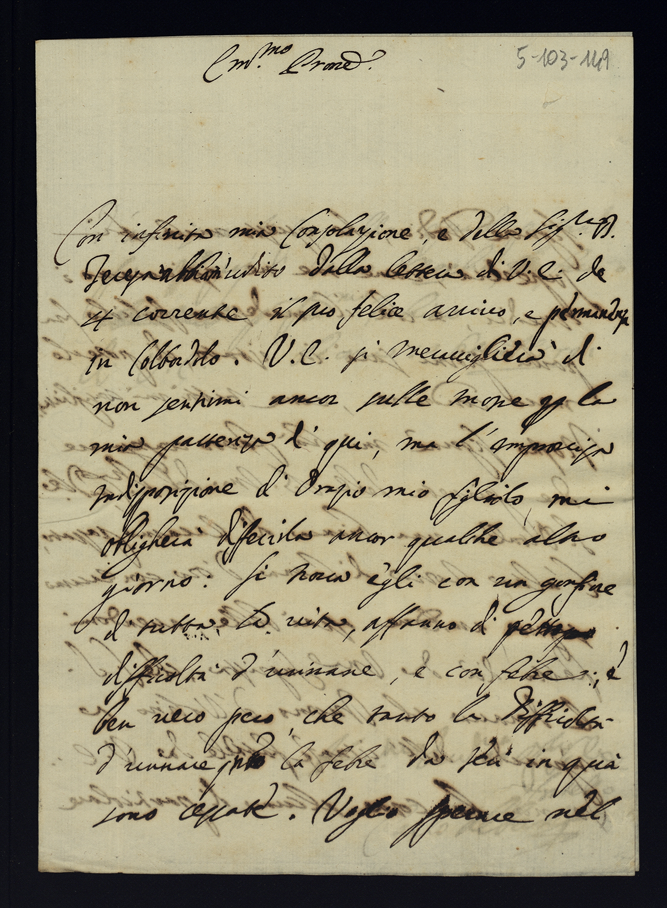 5-103-149
Em.mo Prone
Con infinita mia Consolazione, e della Sig.ra
udito dalla lettera di V.E. de
4 corrente il suo felice arrivo, e permanenza
in Colbordolo. V.E. si meraviglierà di
non sentirmi ancor sulle mosse p la
mia partenza di qui, ma l'improvisa
indisposizione di Orazio mio figliolo, mi
obligherà differirla ancor qualche altro
giorno: si trova egli con un gonfiore
di tutta la vita, affanno di petto,
difficoltà d'urinare, e con febre; è
ben vero però che tanto la difficoltà
d'urinare, la febre da jeri in quà
sono cessate. Voglio sperare nel